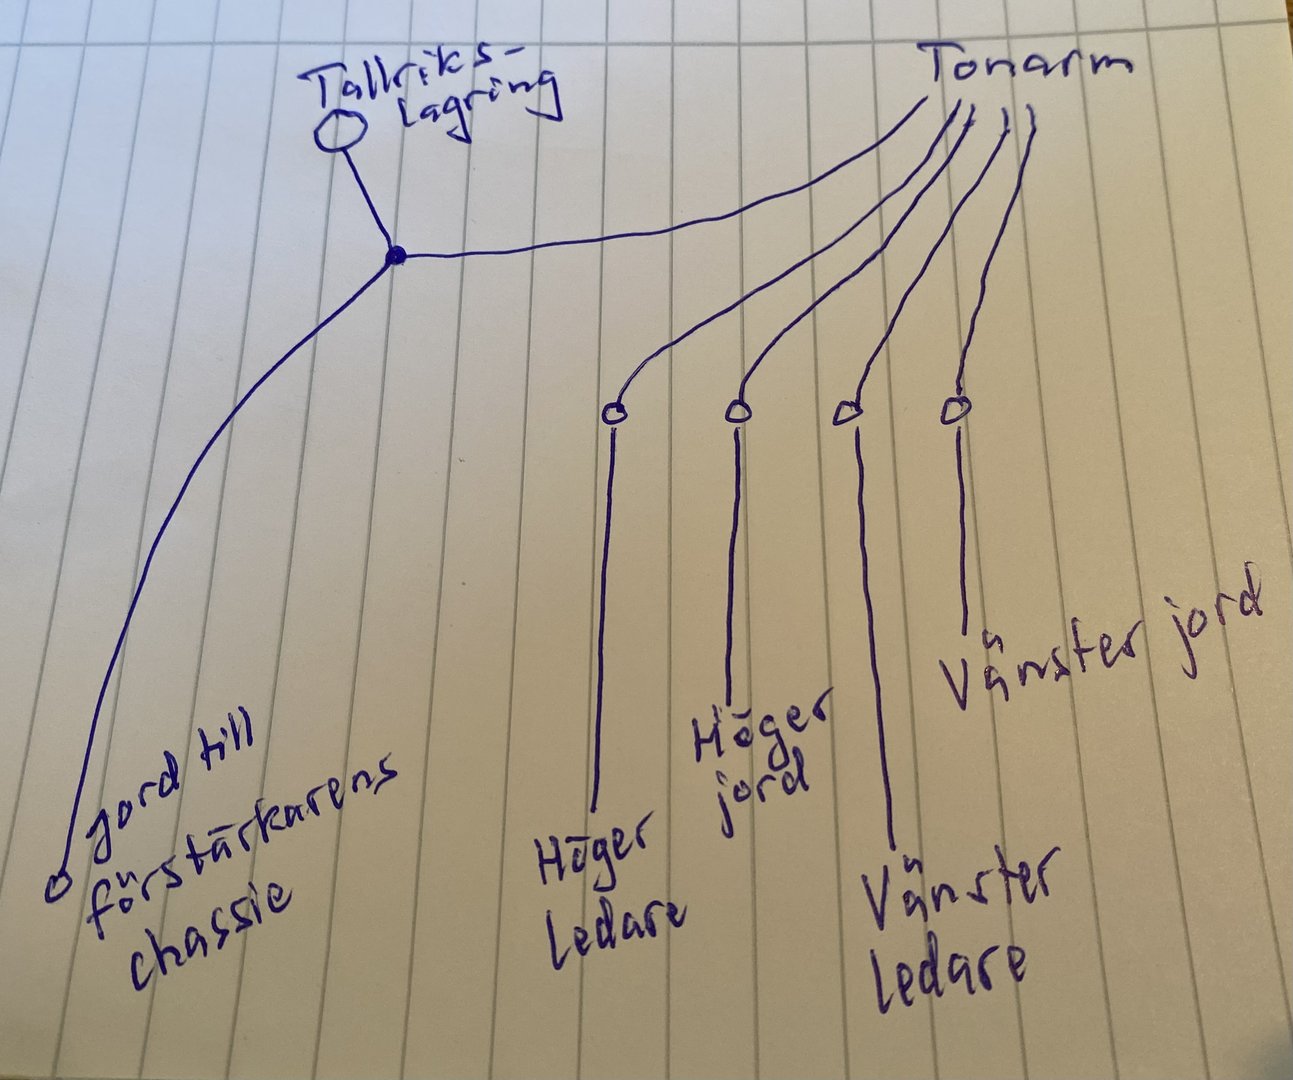 Tallriks-
lagring
Tonarm
jord till
förstärkarens
chassie
Höger
Ledare
Höger
jord
Vänster
Ledare
Vänster jord